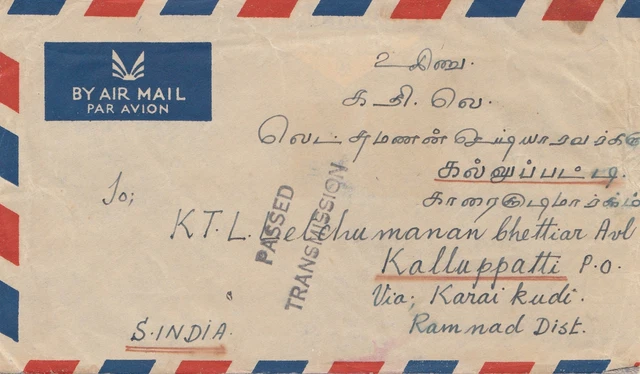 BY AIR MAIL
PAR AVION
உ சிவ.
க. சி. வெ.
லெட்சுமணன் செட்டியாரவர்கள்
கல்லுப்பட்டி.
காரைகுடிமார்க்கம்
To;
K.T.L. Letchumanan Chettiar Avl
Kalluppatti P.O.
Via; Karaikudi.
S.INDIA.
Ramnad Dist.
PASSED
TRANSMISSION